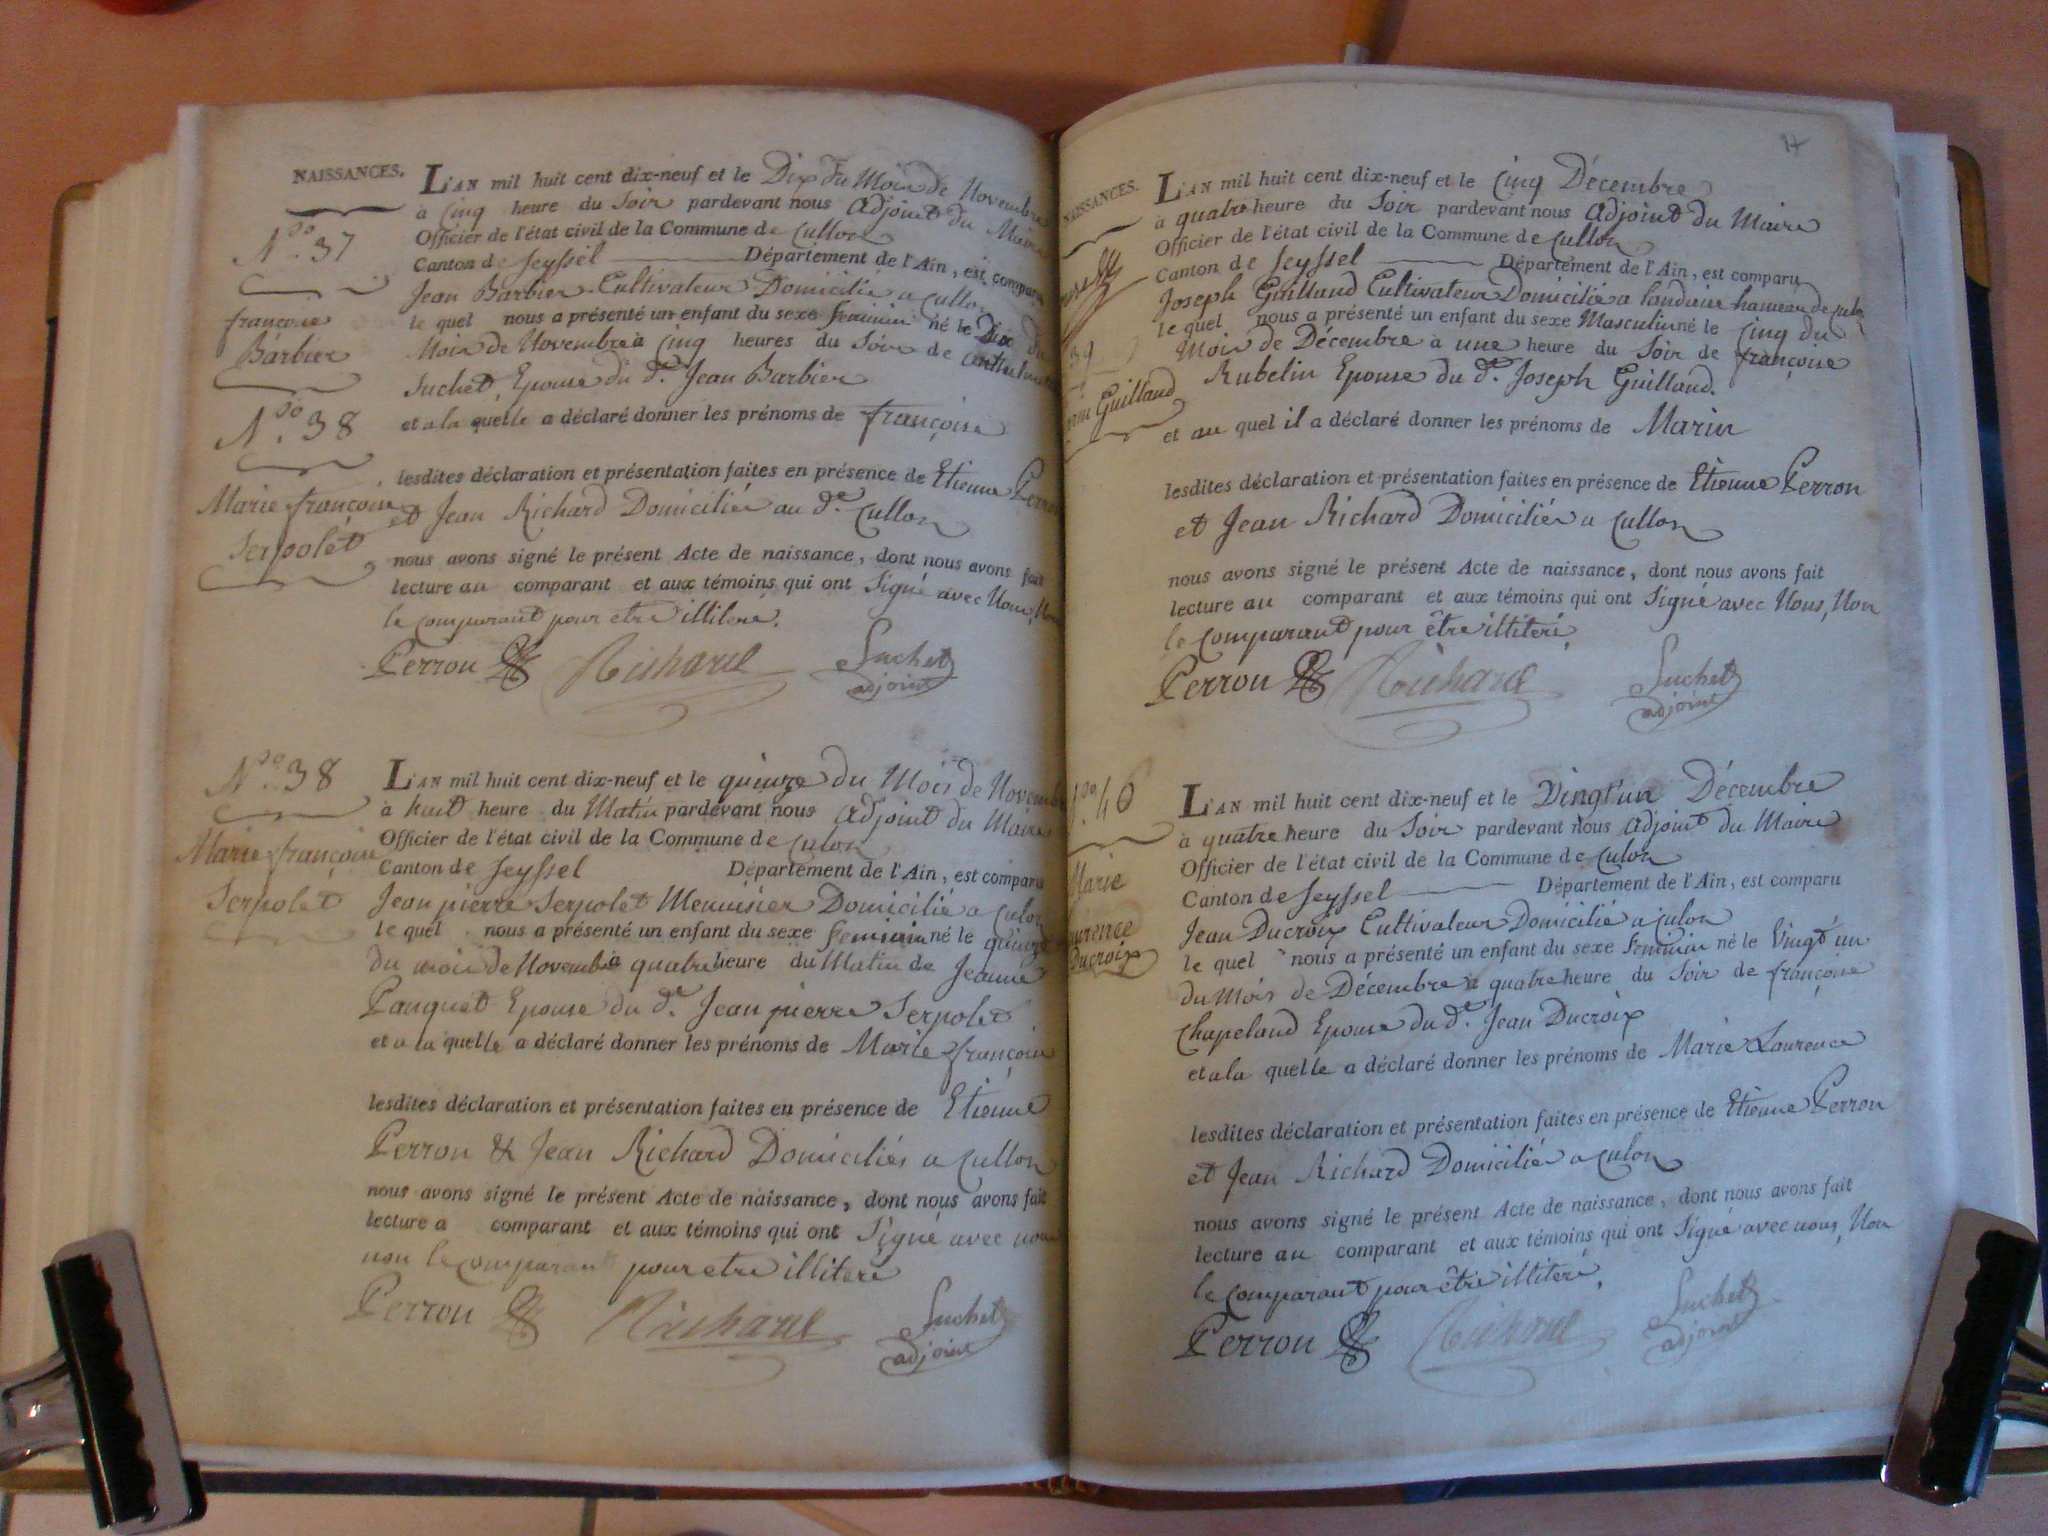 NAISSANCES.
N.ro 37
françoise
Barbier
N.ro 38
Marie françoise
Serpolet
L'AN mil huit cent dix-neuf et le Dix du Mois de Novembre
à Cinq heure du Soir pardevant nous Adjoint du Maire
Officier de l'état civil de la Commune de Cullon
Canton de Seyssel Département de l'Ain, est comparu
Jean Barbier Cultivateur Domicilié a Cullon
le quel nous a présenté un enfant du sexe feminin né le Dix du
Mois de Novembre à Cinq heures du Soir de
Suchet, Epouse du d.t Jean Barbier
et a la quelle a déclaré donner les prénoms de françoise
lesdites déclaration et présentation faites en présence de Etienne Perron
et Jean Richard Domiciliés au d.t Cullon
nous avons signé le présent Acte de naissance, dont nous avons fait
lecture au comparant et aux témoins qui ont Signé avec Nous, Non
le comparant pour etre illiteré.
Perron Richard Suchet
adjoint
N.ro 38
Marie françoise
Serpolet
L'AN mil huit cent dix-neuf et le quinze du Mois de Novembre
à huit heure du Matin pardevant nous Adjoint du Maire
Officier de l'état civil de la Commune de Culon
Canton de Seyssel Département de l'Ain, est comparu
Jean pierre Serpolet Menuisier Domicilié a Culon
le quel nous a présenté un enfant du sexe feminin né le quinze
du mois de Novembre à quatre heure du Matin de Jeanne
Pauquet Epouse du d.t Jean pierre Serpolet
et a la quelle a déclaré donner les prénoms de Marie françoise
lesdites déclaration et présentation faites en présence de Etienne
Perron & Jean Richard Domiciliés a Cullon
nous avons signé le présent Acte de naissance, dont nous avons fait
lecture a comparant et aux témoins qui ont Signé avec nous
non le comparant pour etre illiteré
Perron Richard Suchet
adjoint
NAISSANCES.
39
Guilland
L'AN mil huit cent dix-neuf et le Cinq Décembre
à quatre heure du Soir pardevant nous Adjoint du Maire
Officier de l'état civil de la Commune de Cullon
Canton de Seyssel Département de l'Ain, est comparu
Joseph Guilland Cultivateur Domicilié a Landaise hameau de Culon
le quel nous a présenté un enfant du sexe Masculin né le Cinq du
Mois de Décembre à une heure du Soir de françoise
Rubelin Epouse du d.t Joseph Guilland.
et au quel il a déclaré donner les prénoms de Marin
lesdites déclaration et présentation faites en présence de Etienne Perron
et Jean Richard Domiciliés a Cullon
nous avons signé le présent Acte de naissance, dont nous avons fait
lecture au comparant et aux témoins qui ont Signé avec Nous, Non
le comparant pour être illiteré,
Perron Richard Suchet
adjoint
40
Marie
Laurence
Ducroix
L'AN mil huit cent dix-neuf et le Vingt'un Décembre
à quatre heure du Soir pardevant nous Adjoint du Maire
Officier de l'état civil de la Commune de Culon
Canton de Seyssel Département de l'Ain, est comparu
Jean Ducroix Cultivateur Domicilié a Culon
le quel nous a présenté un enfant du sexe feminin né le Vingt un
du Mois de Décembre à quatre heure du Soir de françoise
Chapeland Epouse du d.t Jean Ducroix
et a la quelle a déclaré donner les prénoms de Marie Laurence
lesdites déclaration et présentation faites en présence de Etienne Perron
et Jean Richard Domiciliés a Culon
nous avons signé le présent Acte de naissance, dont nous avons fait
lecture au comparant et aux témoins qui ont Signé avec nous, Non
le comparant pour être illiteré,
Perron Richard Suchet
adjoint